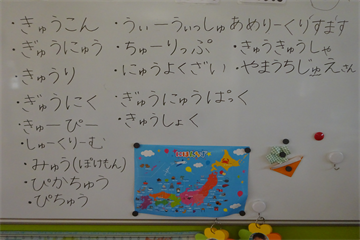 ・きゅうこん
・ぎゅうにゅう
・きゅうり
・ぎゅうにく
・きゅーぴー
・しゅーくりーむ
・みゅう(ぽけもん)
・ぴかちゅう
・ぴちゅう
・うぃーうぃっしゅあめりーくりすます
・ちゅーりっぷ
・きゅうきゅうしゃ
・にゅうよくざい
・やまうちじゅえさん
・ぎゅうにゅうぱっく
・きゅうしょく